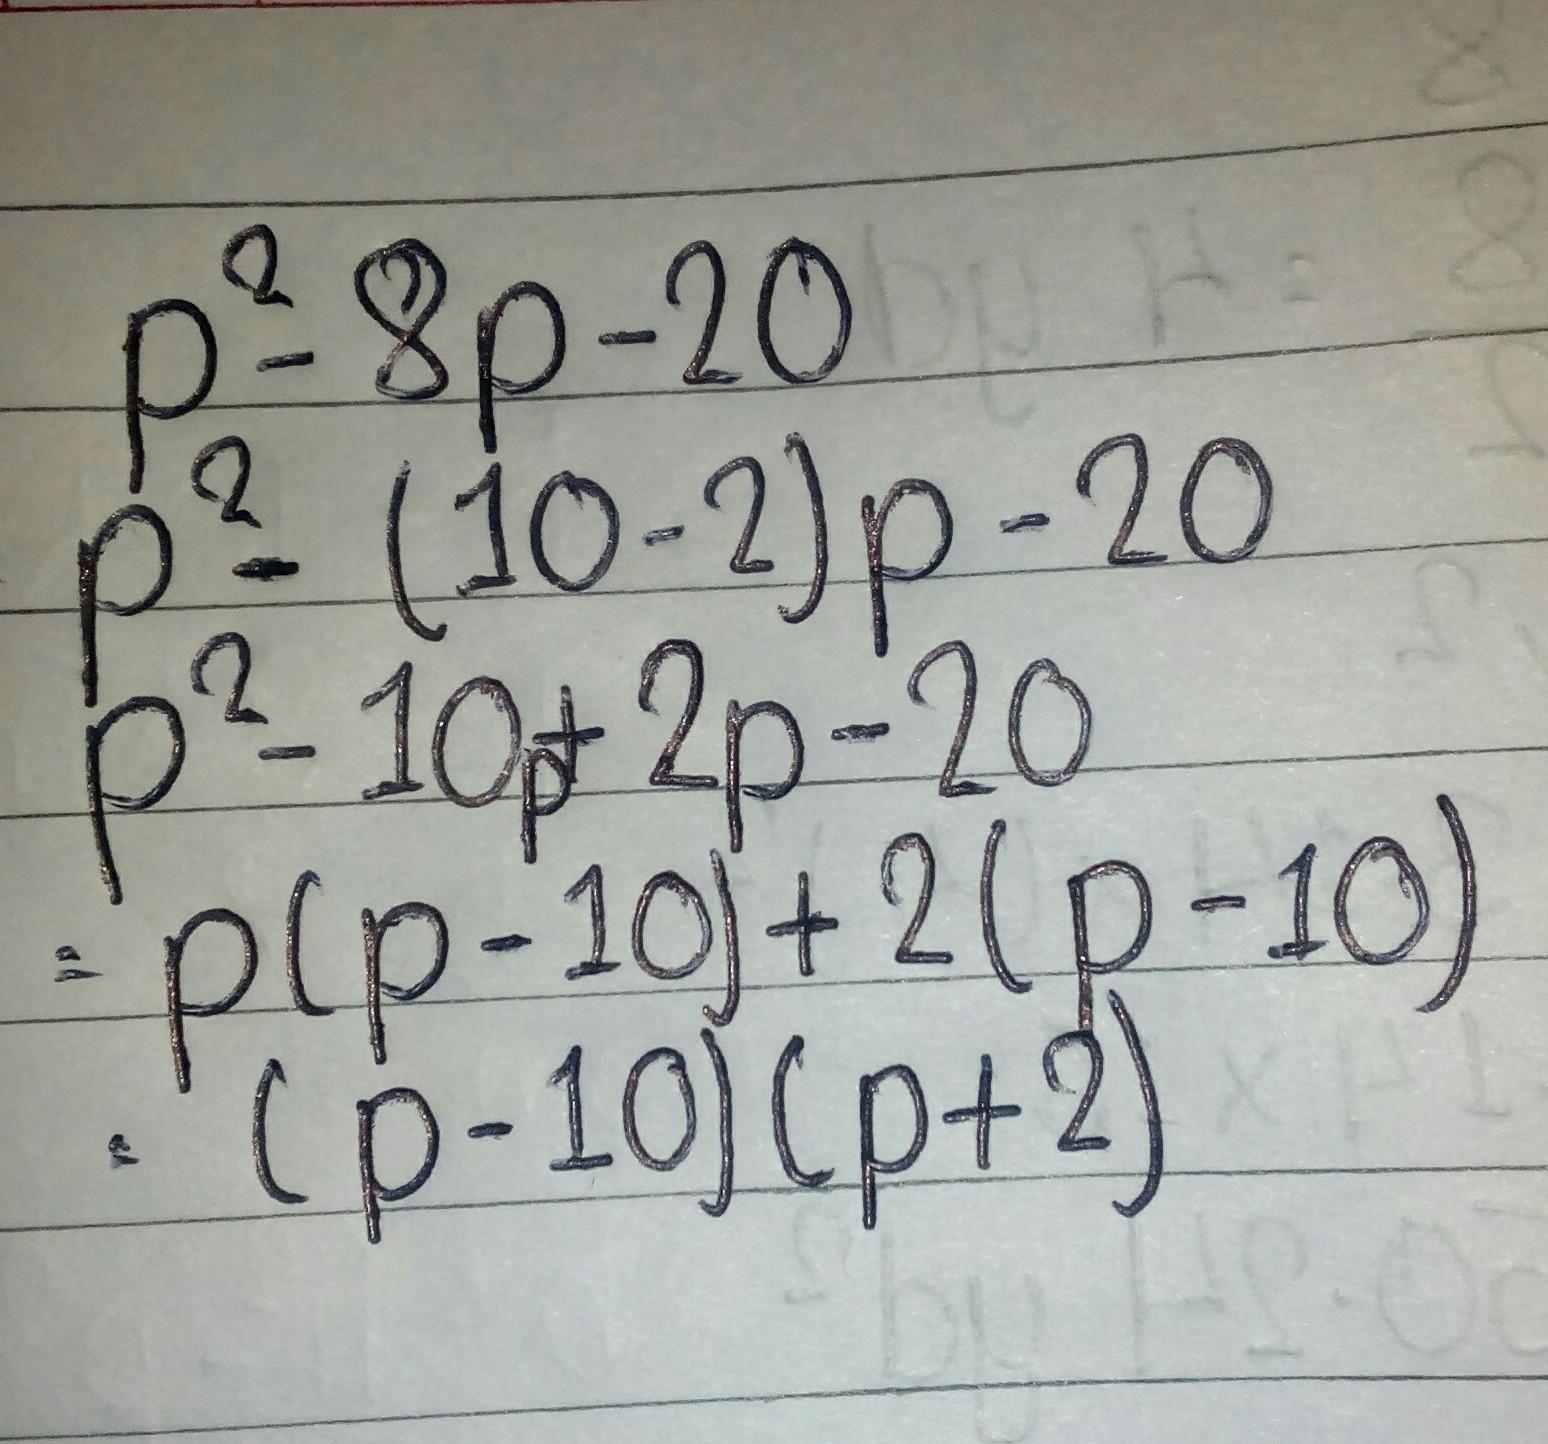 p² - 8p - 20
p² - (10 - 2)p - 20
p² - 10p + 2p - 20
= p(p - 10) + 2(p - 10)
= (p - 10)(p + 2)